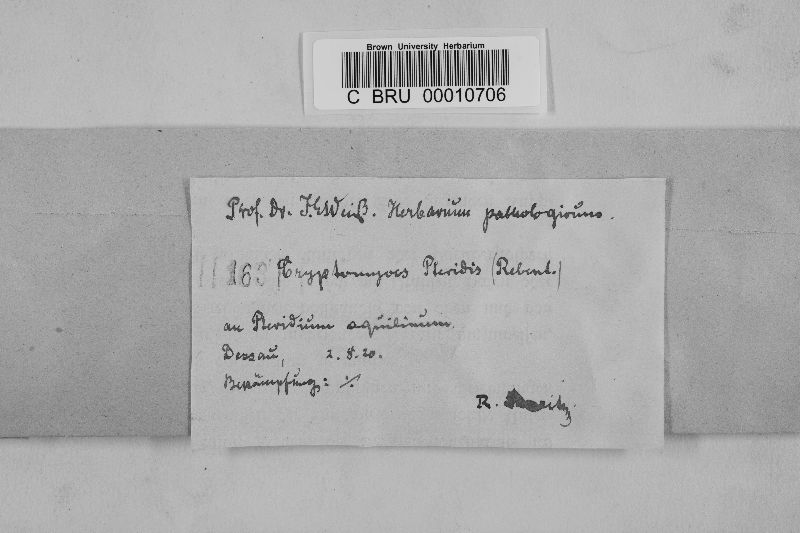 Brown University Herbarium
C BRU 00010706
Prof. Dr. J.E. Weiß. Herbarium pathologicum.
163 Cryptomyces Pteridis (Rebent.)
an Pteridium aquilinum.
Dessau, 2.8.20.
Bekämpfung: ·/·
R.